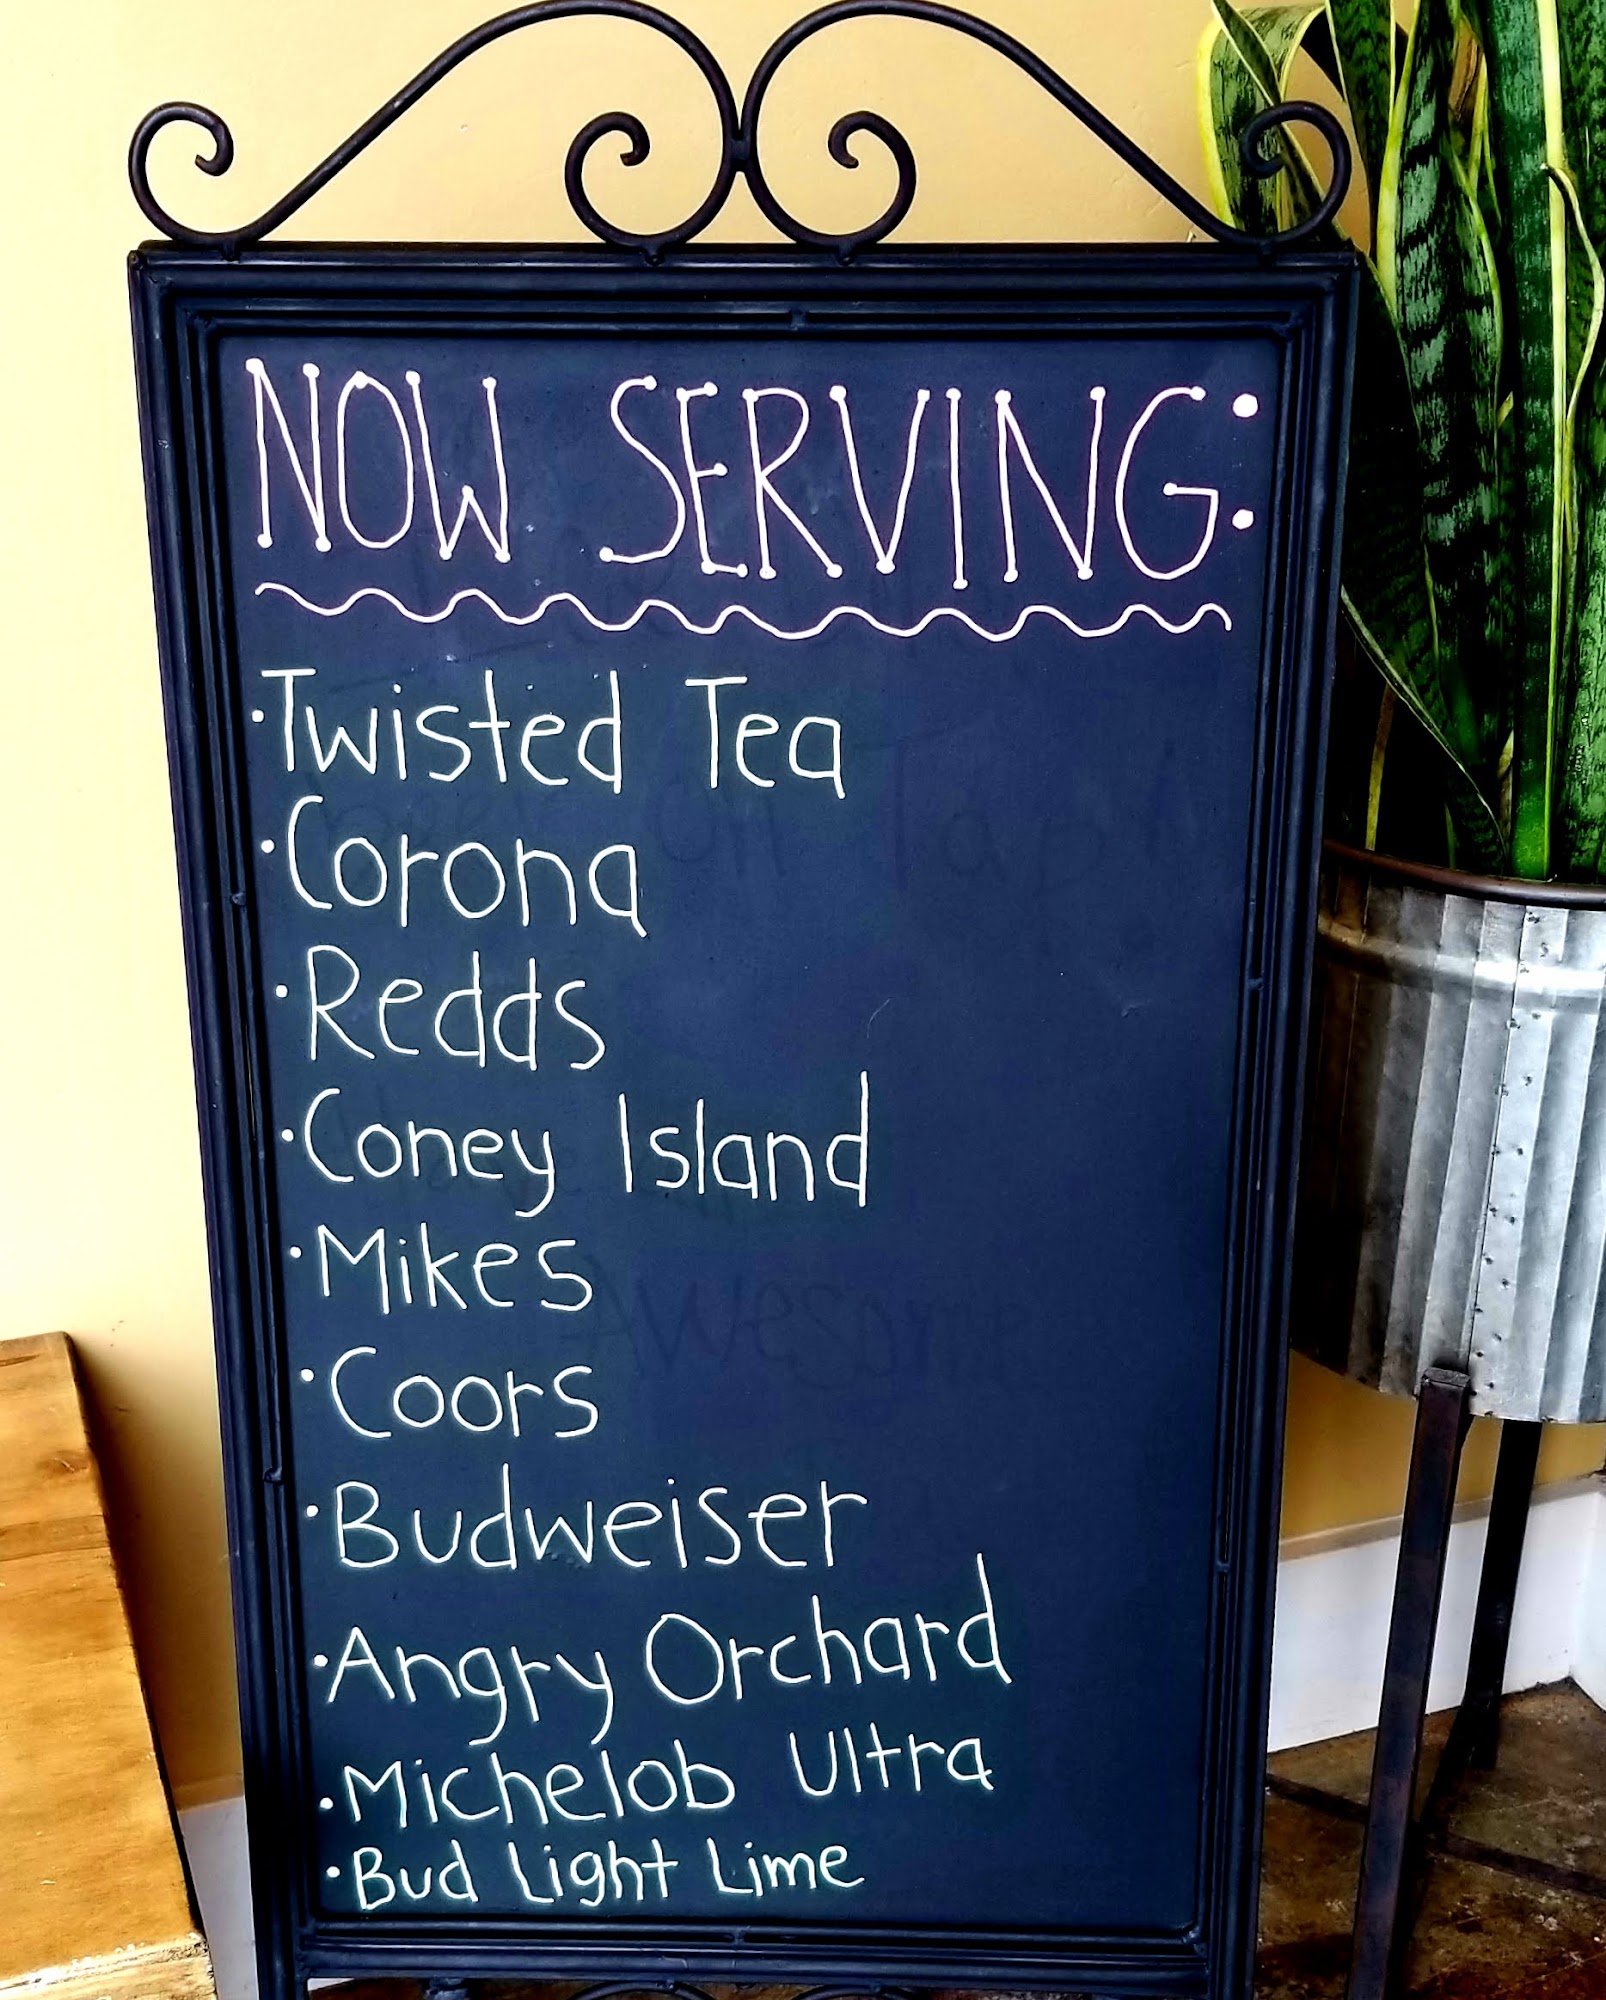 NOW SERVING:
·Twisted Tea
·Corona
·Redds
·Coney Island
·Mikes
·Coors
·Budweiser
·Angry Orchard
·Michelob Ultra
·Bud Light Lime